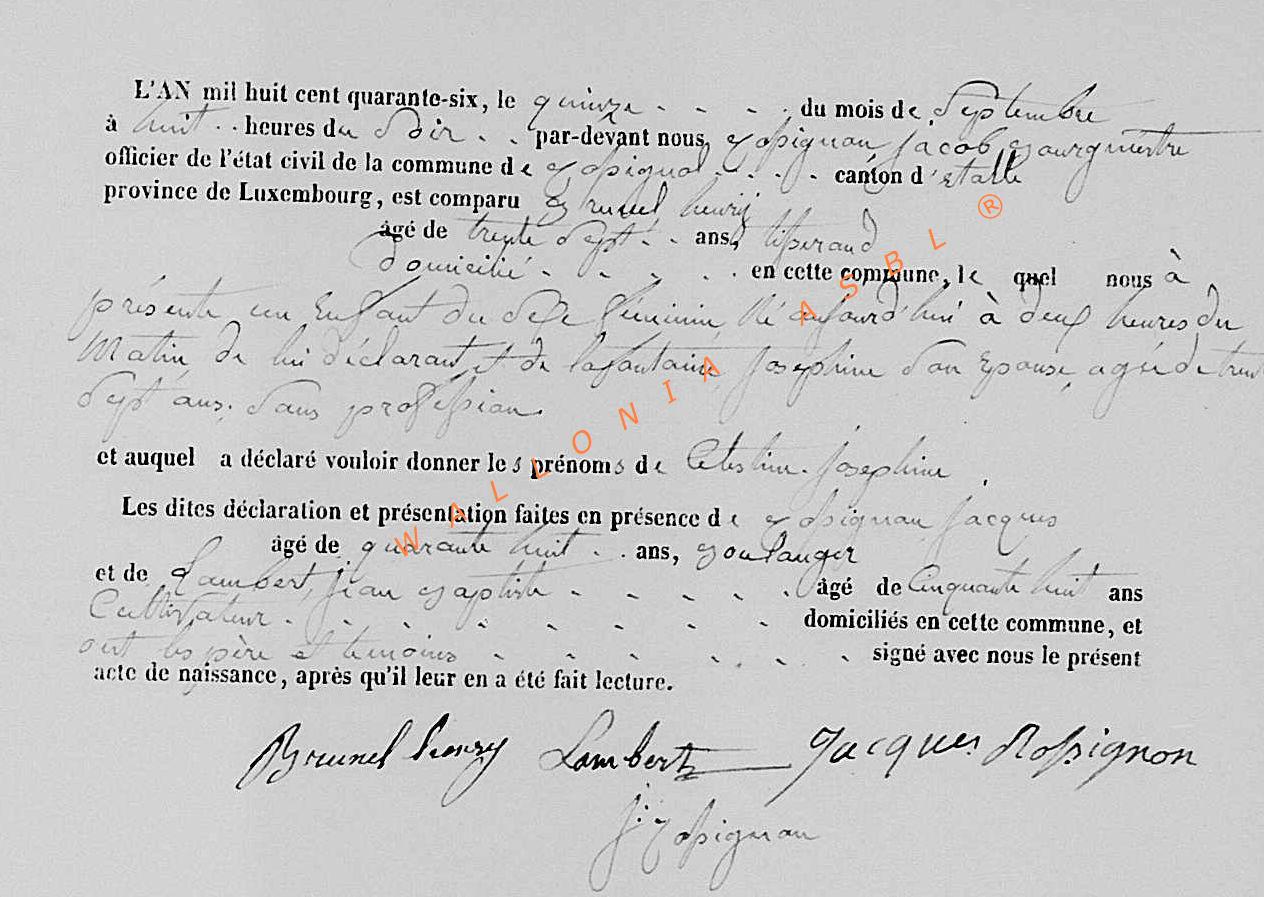 L'AN mil huit cent quarante-six, le quinze - - - . du mois de Septembre
à huit . . heures du Soir . . par-devant nous, Rossignon Jacob Bourgmestre
officier de l'état civil de la commune de Rossignol . . . . canton d'Etalle
province de Luxembourg, est comparu Brunel henry
âgé de trente Sept . . ans, tisserand
domicilié - - - - . en cette commune, lequel nous à
présenté un Enfant du Sexe féminin, Né aujourd'hui à deux heures du
Matin, de lui déclarant, et de lafontaine Josephine Son Epouse, agée de trente
Sept ans. Sans profession.
et auquel a déclaré vouloir donner les prénoms de Celestine Josephine .
Les dites déclaration et présentation faites en présence de Rossignon Jacques
âgé de quarante huit . . ans, Boulanger
et de Lambert, jean Baptiste - - - - . âgé de Cinquante huit ans
Cultivateur . - - - - - - domiciliés en cette commune, et
ont les père et temoins - - - - . - signé avec nous le présent
acte de naissance, après qu'il leur en a été fait lecture.
Brunel henry Lambert Jacques Rossignon
J. Rossignon
WALLONIA ASBL ®